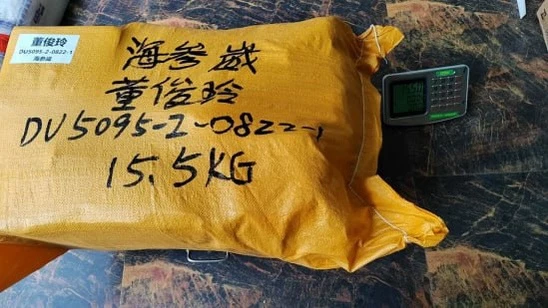 董俊玲
DU5095-2-0822-1
海参崴
海参崴
董俊玲
DU5095-2-0822-1
15.5KG